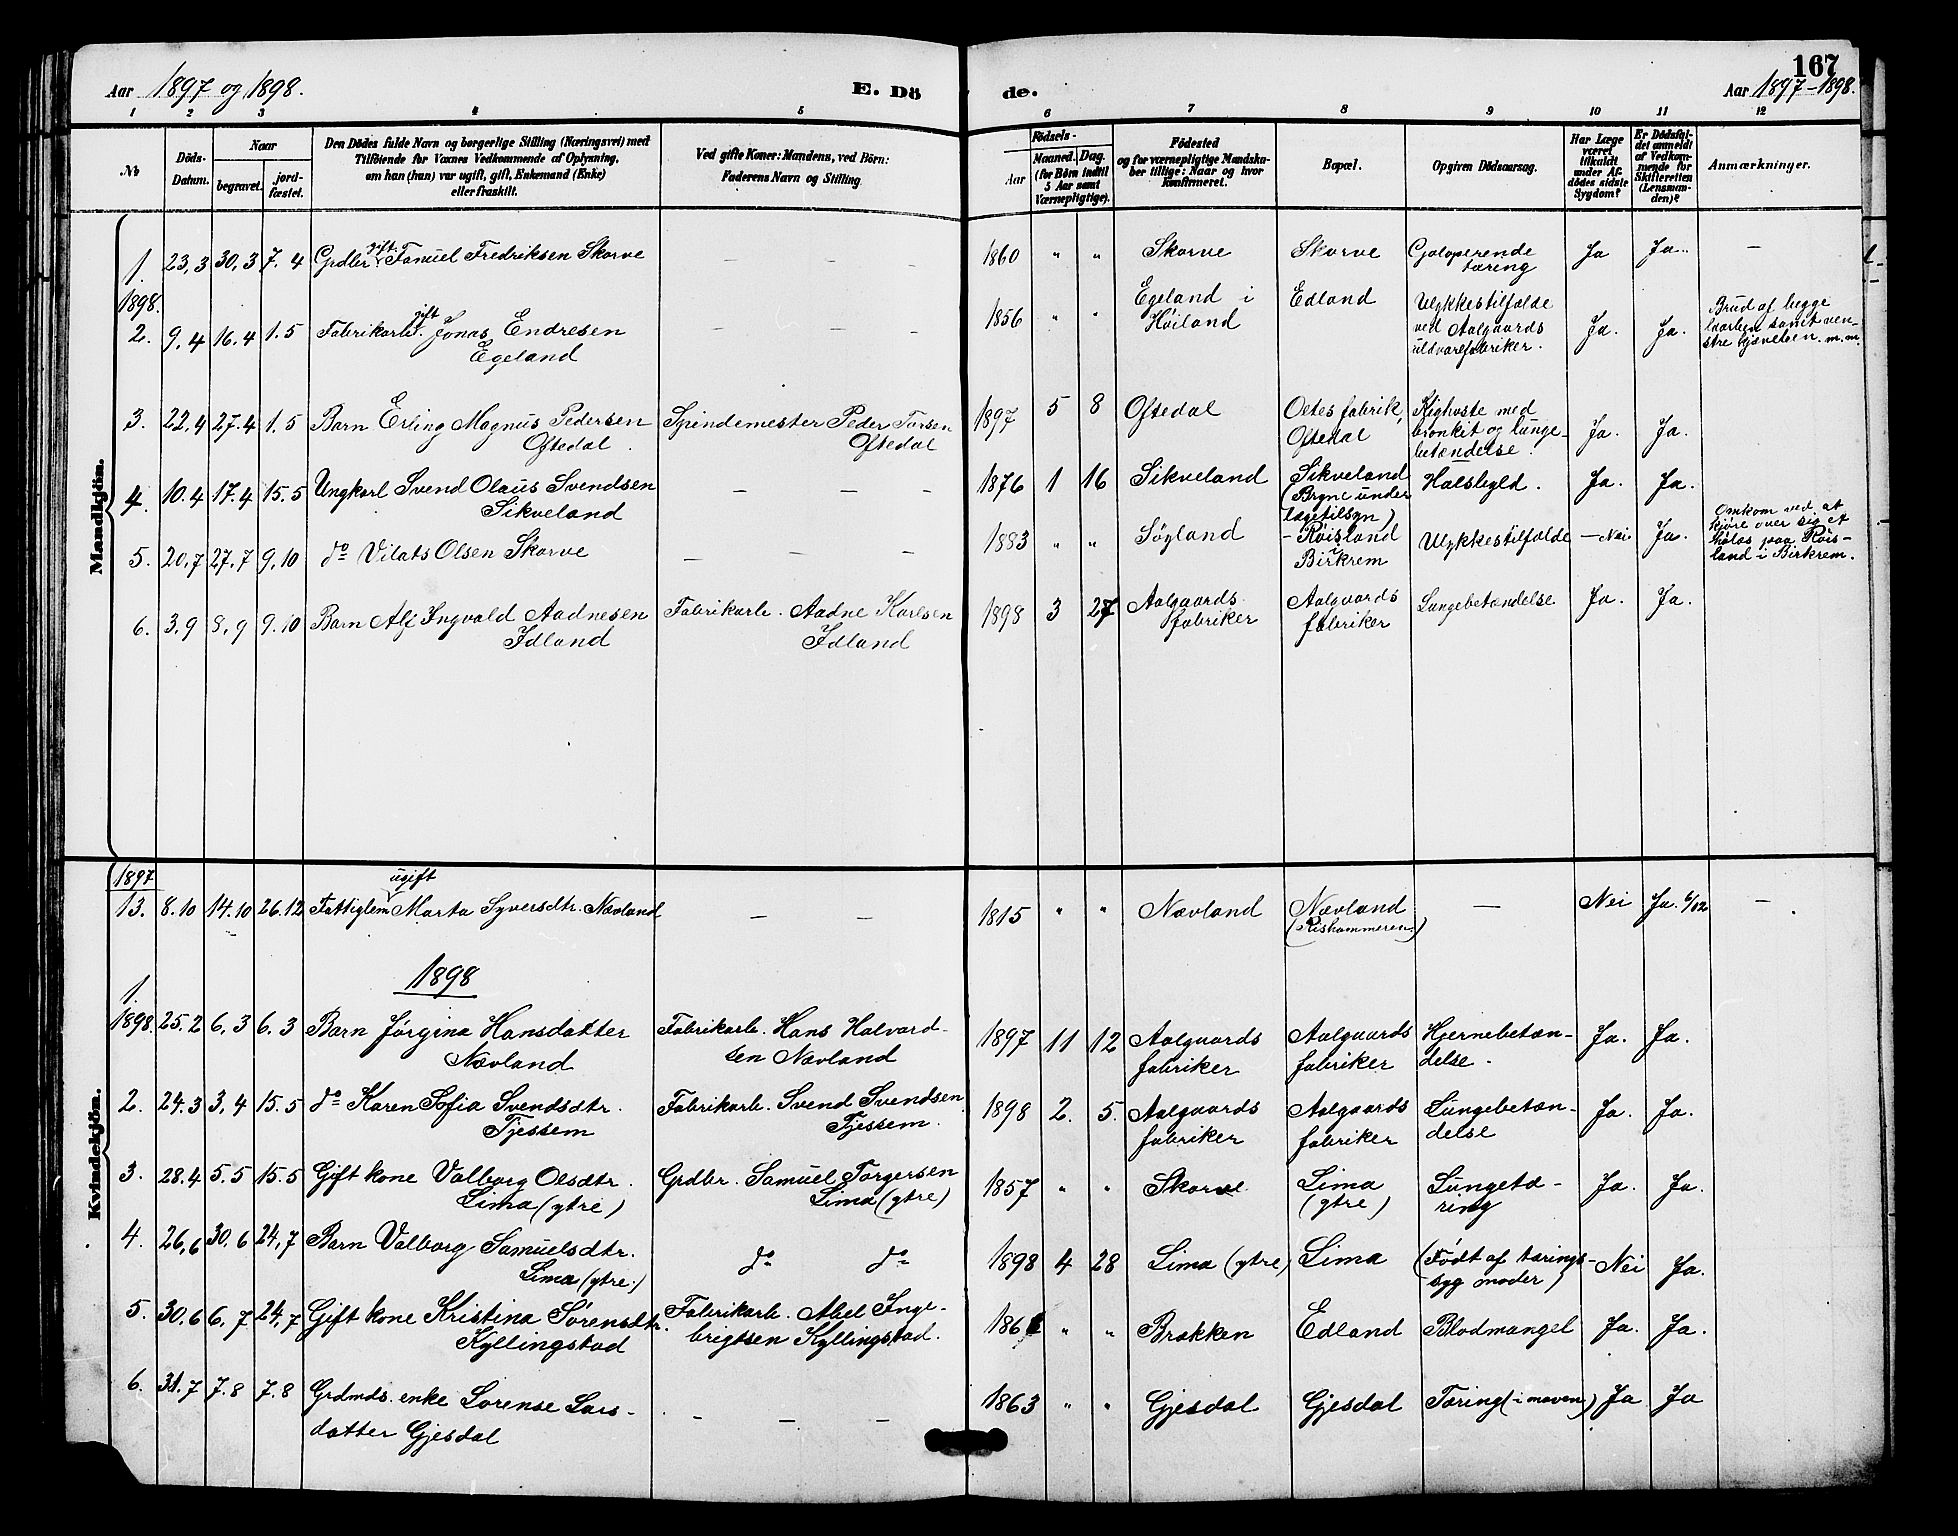 Aar 1897 og 1898.
E. Dö
de.
167
Aar 1897-1898.
1 2 3 4 5 6 7 8 9 10 11 12
No
Döds-
Datum.
Naar
begravet.
jord-
fæstet.
Den Dödes fulde Navn og borgerlige Stilling (Næringsvei) med
Tilföiende for Voxnes Vedkommende af Oplysning,
om han (hun) var ugift, gift, Enkemand (Enke)
eller fraskilt.
Ved gifte Koner: Mandens, ved Börn:
Faderens Navn og Stilling.
Födsels-
Aar
Maaned. Dag.
(for Börn indtil
5 Aar samt
Værnepligtige).
Födested
og for værnepligtige Mandska-
ber tillige: Naar og hvor
konfirmeret.
Bopæl.
Opgiven Dödsaarsag.
Har Læge
været
tilkaldt
under Af-
dödes sidste
Sygdom?
Er Dödsfal-
det anmeldt
af Vedkom-
mende for
Skifteretten
(Lensman-
den)?
Anmærkninger.
Mandkjön.
1. 23,3 30,3 7.4 Grdbr gift Samuel Fredriksen Skorve — — — 1860 " " Skorve Skorve Galoperende Ja Ja —
tæring
1898.
2. 9.4 16.4 1.5 Fabrikarb. gift Jonas Endresen — — — 1856 " " Egeland i Edland Ulykkestilfælde Ja. Ja. Brud af begge
Egeland Høiland ved Aalgaards laarben samt ven-
uldvarefabriker. stre kjæveben. m.m.
3. 22,4 27.4 1.5 Barn Erling Magnus Pedersen Spindemester Peder Torsen 1897 5 8 Oftedal Oltes fabrik, Kighoste med Ja. Ja.
Oftedal. Oftedal Oftedal bronkit og lunge-
betændelse.
4. 10.4 17.4 15.5 Ungkarl Svend Olaus Svendsen — — — 1876 1 16 Sikveland Sikveland Halsbyld. Ja. Ja.
Sikveland (Bryne under
lægetilsyn)
5. 20,7 27,7 9,10 do Vilats Olsen Skorve — — — 1883 " " Søyland - Røisland Ulykkestilfælde — Nei Ja. Omkom ved at
Birkrem kjøre over sig et
hølas paa Røis-
land i Birkrem.
6. 3,9 8,9 9.10 Barn Alf Ingvald Aadnesen Fabrikarb. Aadne Karlsen 1898 3 27 Aalgaards Aalgaards Lungebetændelse Ja. Ja.
Idland Idland fabriker fabriker
Kvindekjön.
1897
13. 8.10 14.10 26.12 Fattiglem ugift Marta Syversdtr. Nævland — — 1815 " " Nævland Nævland — Nei Ja. 6/12 —
(Rishammeren)
1898
1.
1898. 25.2 6,3 6.3 Barn Jørgina Hansdatter Fabrikarb. Hans Halvard- 1897 11 12 Aalgaards Aalgaards Hjernebetæn- Ja. Ja.
Nævland sen Nævland fabriker fabriker delse.
2. 24.3 3,4 15.5 do Karen Sofia Svendsdtr. Fabrikarb. Svend Svendsen 1898 2. 5. Aalgaards Aalgaards Lungebetæn- Ja. Ja.
Tjessem Tjessem. fabriker fabriker delse
3. 28.4 5.5 15.5 Gift kone Valborg Olsdtr. Grdbr. Samuel Torgersen 1857 " " Skorve Lima Lungetæ- Ja. Ja.
Lima (ytre) Lima (ytre) (ytre) ring
4. 26,6 30,6 24,7 Barn Valborg Samuelsdtr. do do 1898 4 28 Lima (ytre) Lima (Født af tærings- Nei Ja.
Lima (ytre.) syg moder)
5. 30,6 6,7 24,7 Gift kone Kristina Sørensdtr. Fabrikarb. Abel Inge- 186 " " Brækken Edland Blodmangel Ja. Ja.
Kyllingstad brigtsen Kyllingstad.
6. 31.7 7.8 7.8 Grdmds. enke Lorense Lars- — — — 1863 " " Gjesdal Gjesdal Tæring (i maven) Ja Ja
datter Gjesdal